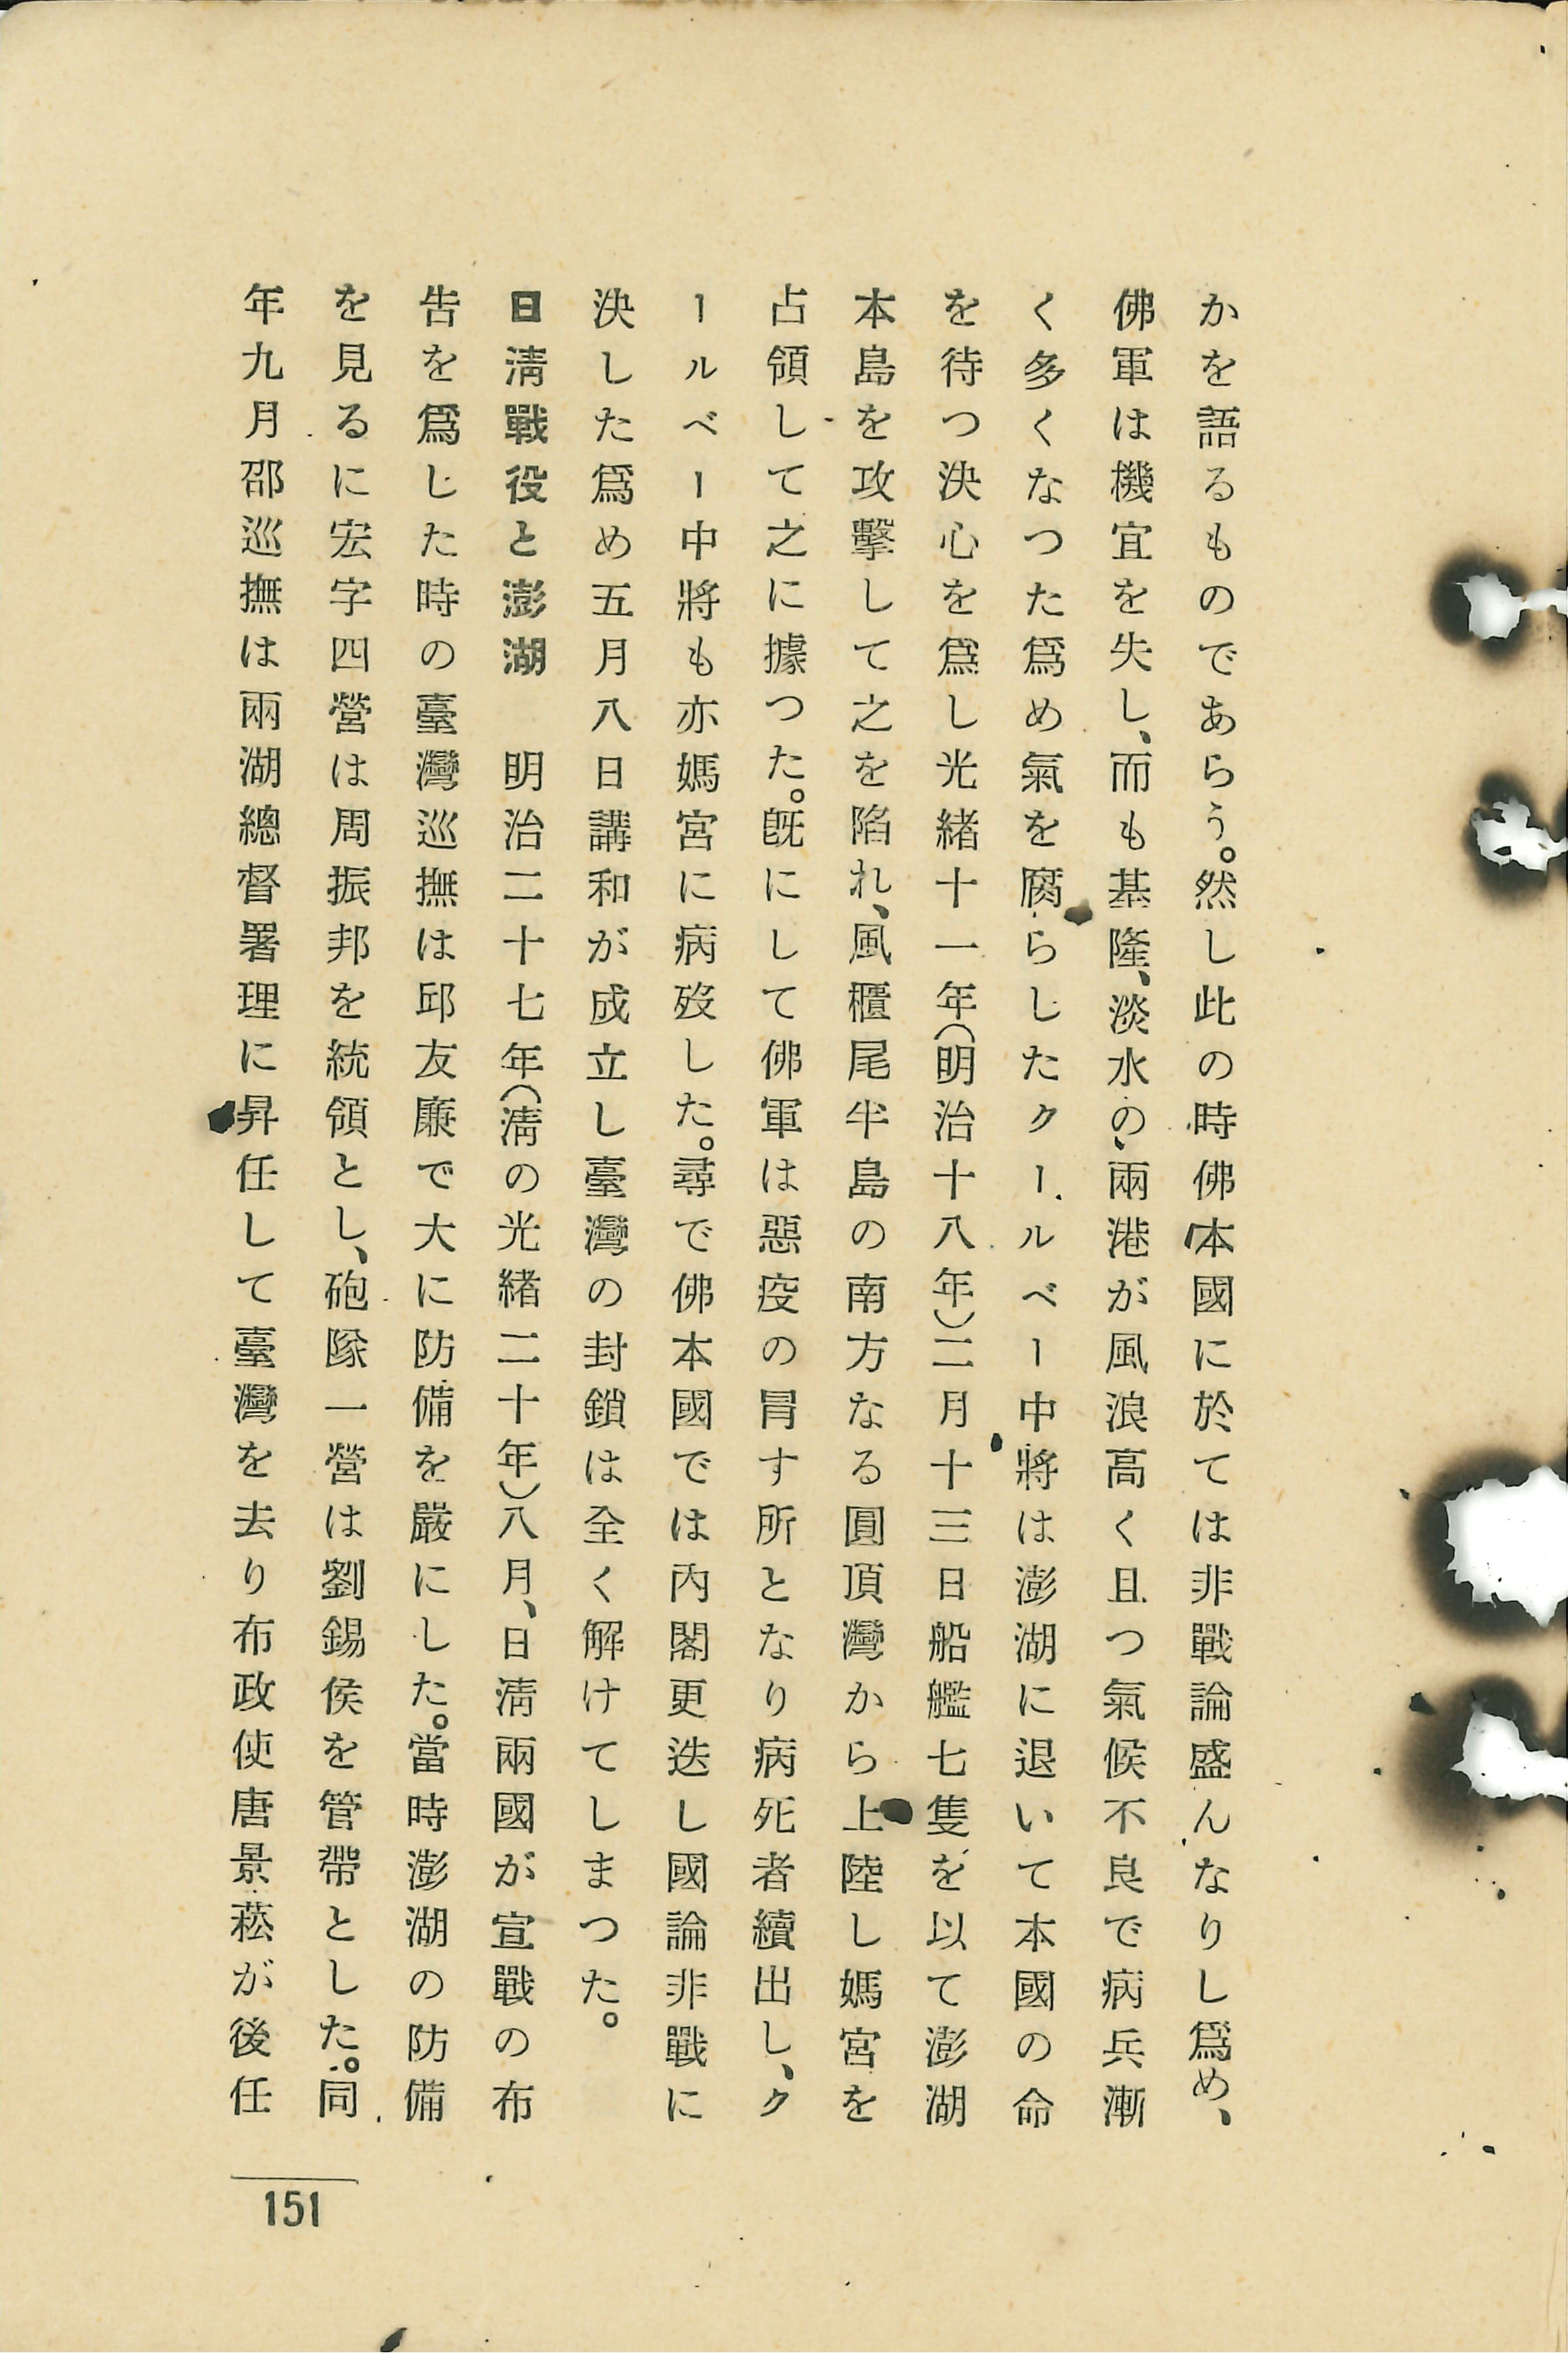 かを語るものであらう。然し此の時佛本國に於ては非戰論盛んなりし爲め、
佛軍は機宜を失し、而も基隆、淡水の、兩港が風浪高く且つ氣候不良で病兵漸
く多くなつた爲め氣を腐らしたクールベー中將は澎湖に退いて本國の命
を待つ決心を爲し光緖十一年(明治十八年)二月十三日船艦七隻を以て澎湖
本島を攻擊して之を陷れ、風櫃尾半島の南方なる圓頂灣から上陸し媽宮を
占領して之に據つた。旣にして佛軍は惡疫の冐す所となり病死者續出し、ク
ールベー中將も亦媽宮に病歿した。尋で佛本國では內閣更迭し國論非戰に
決した爲め五月八日講和が成立し臺灣の封鎖は全く解けてしまつた。
日淸戰役と澎湖　明治二十七年(淸の光緖二十年)八月、日淸兩國が宣戰の布
告を爲した時の臺灣巡撫は邱友廉で大に防備を嚴にした。當時澎湖の防備
を見るに宏字四營は周振邦を統領とし、砲隊一營は劉錫侯を管帶とした。同
年九月邵巡撫は兩湖總督署理に昇任して臺灣を去り布政使唐景菘が後任
151